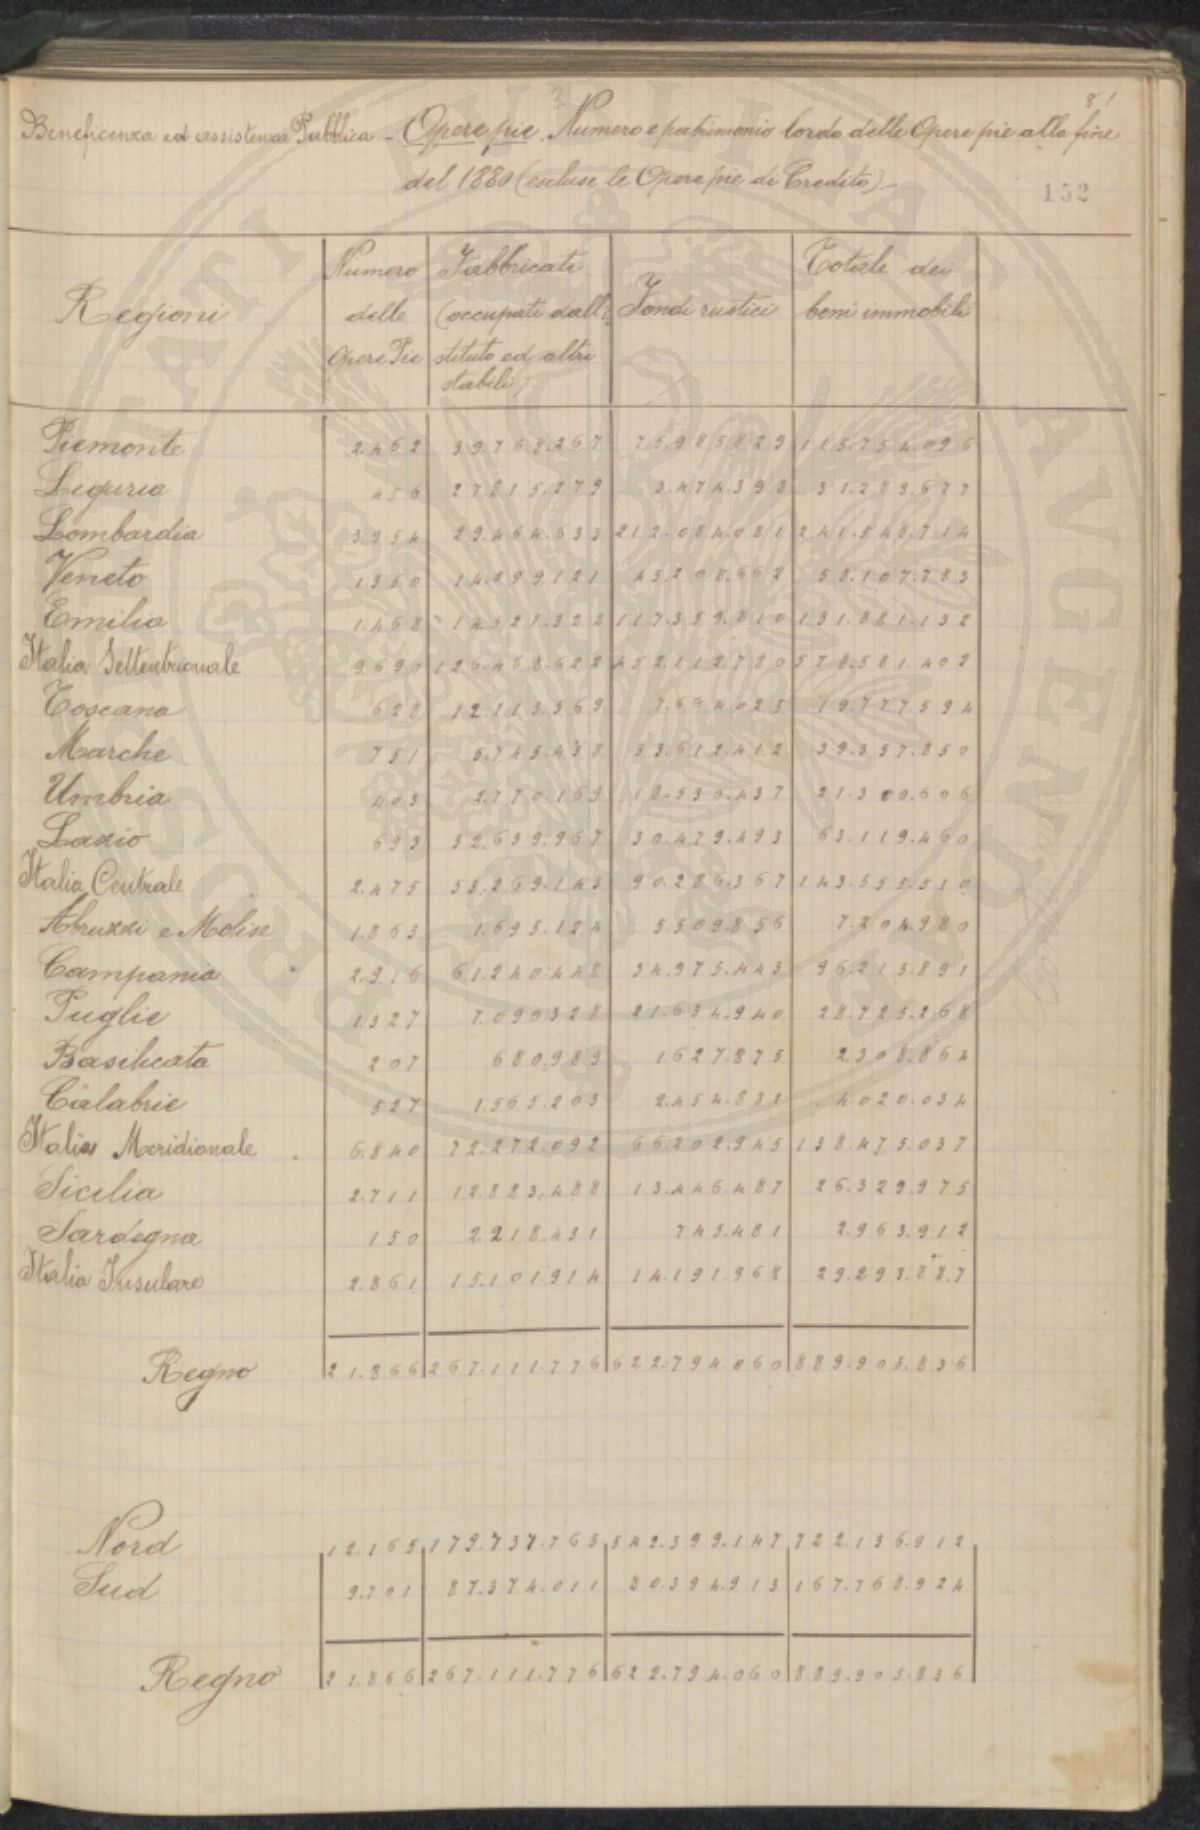 81
Beneficenza ed assistenza Pubblica - Opere pie. Numero e patrimonio lordo delle Opere pie alla fine
del 1880 (escluse le Opere pie di Credito).-
152
Regioni Numero delle Opere Pie Fabbricati (occupati dall'istituto ed altri stabili) Fondi rustici Totale dei beni immobili
Piemonte 2.462 39.768.267 75.985.829 115.754.096
Liguria 456 27.815.279 3.474.398 31.289.677
Lombardia 3.954 29.464.633 212.084.081 241.548.714
Veneto 1350 14.899.121 43.208.662 58.107.783
Emilia 1.468 14.521.322 117.359.810 131.881.132
Italia Settentrionale 9690 126.468.622 452.112.780 578.581.402
Toscana 628 12.113.569 7.664.025 19.777.594
Marche 751 5.745.438 33.612.412 39.357.850
Umbria 403 2.770.169 18.530.437 21.300.606
Lazio 693 32.639.967 30.479.493 63.119.460
Italia Centrale 2.475 53.269.143 90.286.367 143.555.510
Abruzzi e Molise 1.863 1.695.124 5.509.856 7.204.980
Campania 2.916 61.240.448 34.975.443 96.215.891
Puglie 1327 7.090.328 21.634.940 28.725.268
Basilicata 207 680.989 1.627.875 2.308.864
Calabrie 527 1.565.203 2.454.831 4.020.034
Italia Meridionale 6.840 72.272.092 66.202.945 138.475.037
Sicilia 2.711 12.883.488 13.446.487 26.329.975
Sardegna 150 2.218.431 745.481 2.963.912
Italia Insulare 2.861 15.101.919 14.191.968 29.293.887
Regno 21.866 267.111.776 622.794.060 889.905.836
Nord 12.165 179.737.765 542.399.147 722.136.912
Sud 9.701 87.374.011 80.394.913 167.768.924
Regno 21.866 267.111.776 622.794.060 889.905.836